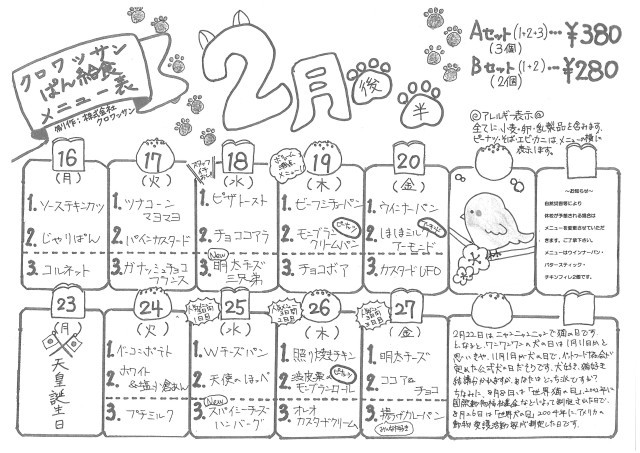 クロワッサン
ぱん給食
メニュー表
制作：株式会社
クロワッサン
2月
後半
Aセット(1+2+3)…¥380
(3個)
Bセット(1+2)…¥280
(2個)
@アレルギー表示@
全てに小麦・卵・乳製品を含みます。
ピーナツ・そば・エビ・カニはメニューの横に
表示します。
16
(月)
1.ソースチキンカツ
2.じゃりぱん
3.コルネット
17
(火)
1.ツナコーン
マヨマヨ
2.パインカスタード
3.ガナッシュチョコ
フランス
18
(水)
1.ピザトースト
2.チョココアラ
New
3.明太チーズ
三兄弟
19
(木)
1.ビーフシチューパン
2.モーブラン
クリームパン
ピーナツ
3.チョコボア
20
(金)
1.ウインナーパン
2.ほしほしミルク
アーモンド
3.カスタードUFO
～お知らせ～
自然災害等により
休校が予想される場合は
メニューを変動させていただ
きます。ご了承下さい。
メニューはウインナーパン・
バタースティック・
チキンフィレ2種です。
23
(月)
天皇誕生日
24
(火)
1.ベーコンポテト
2.ホワイト
&塩小倉あん
3.プチミルク
25
(水)
1.Wチーズパン
2.天使のほっぺ
New
3.スパイシーチーズ
ハンバーグ
26
(木)
1.照り焼きチキン
2.
モーブランロール
ピーナツ
3.オレオ
カスタードクリーム
27
(金)
1.明太チーズ
2.ココア&
チョコ
3.揚げカレーパン
2月22日はニャンニャンニャンで猫の日です。
となると、ワンワンワンの犬の日は1月11日かと
思いきや、11月1日が犬の日で、ペットフード協会が
定めた公式犬の日だそうです。犬好き、猫好き
ちなみに、8月8日は「世界猫の日」2002年に
国際動物福祉基金などによって制定された日で、
8月26日は「世界犬の日」2004年にアメリカの